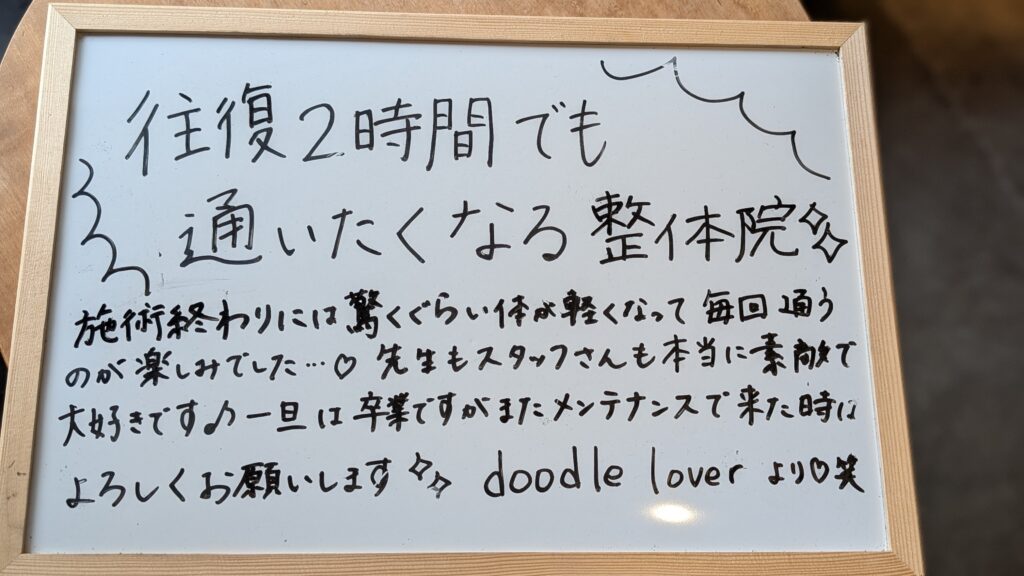 往復2時間でも
通いたくなる整体院✧✧
施術終わりには驚くぐらい体が軽くなって 毎回通う
のが楽しみでした…♡ 先生もスタッフさんも本当に素敵で
大好きです♪一旦は卒業ですがまたメンテナンスで来た時は
よろしくお願いします✧✧ doodle lover より♡笑